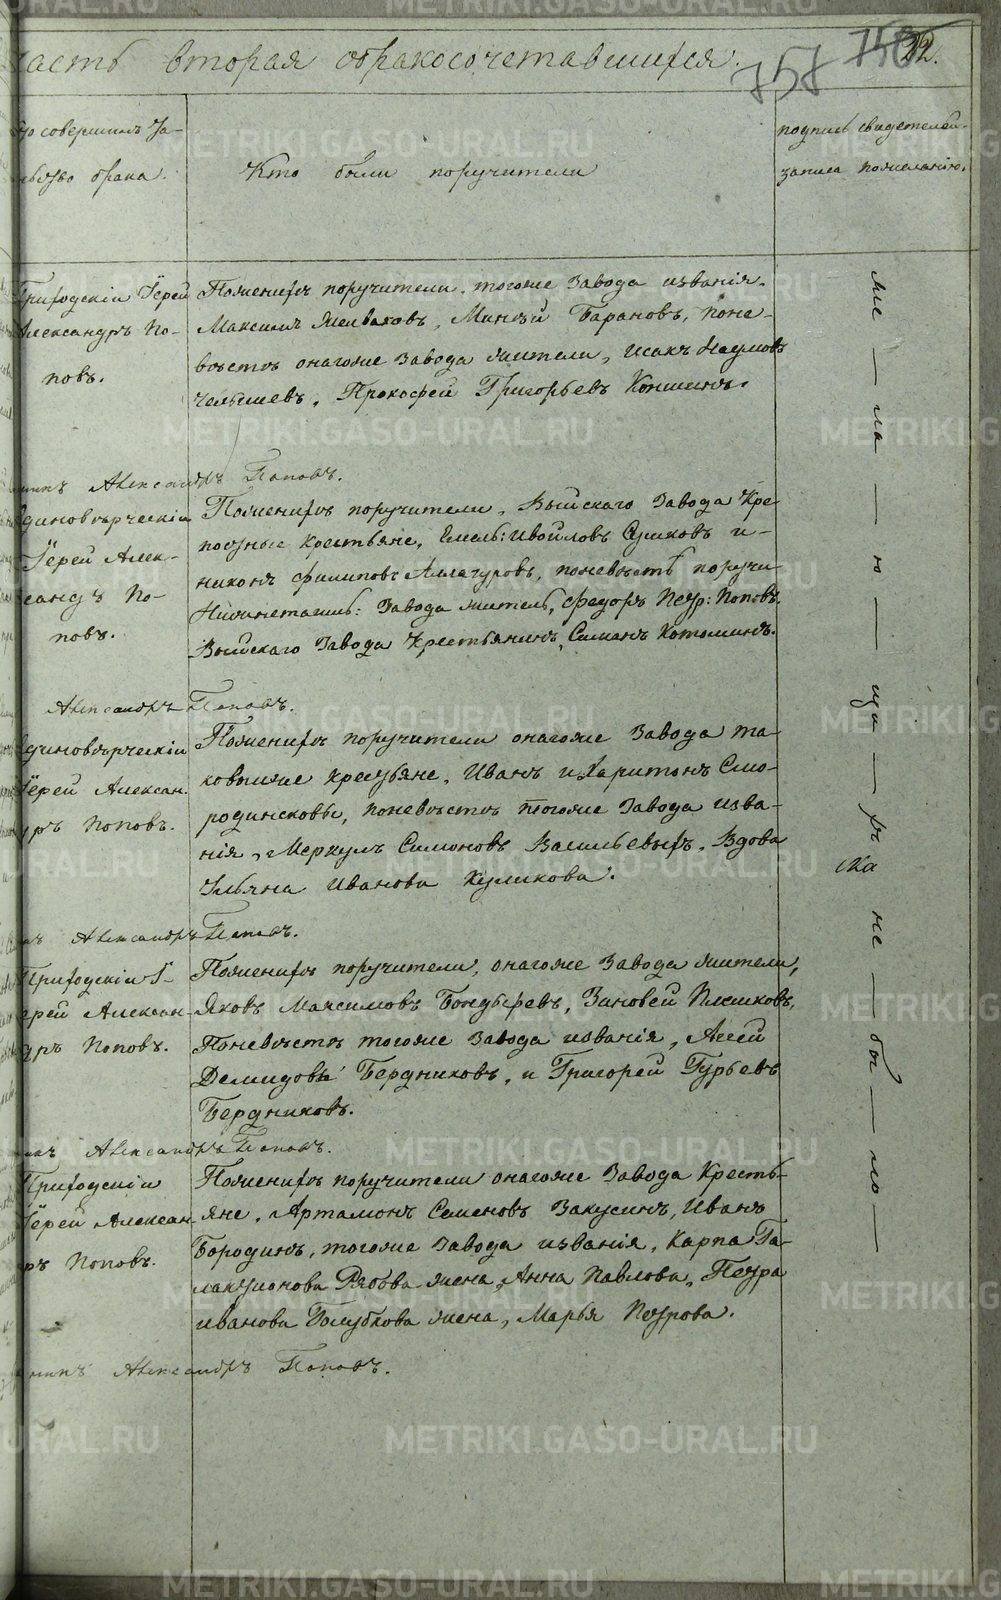 часть вторая обракосочетавшихся.
757
32.
то совершилъ Та-
инство брака.
Кто были поручители
подпись свидетелей
записа пожеланію.
Приходскіи Іерей
Александръ По-
повъ.
Поженихѣ поручители, тогоже Завода изванія.
Максимъ , Барановъ, поне-
вѣстѣ онагоже Завода жители, Исакъ Наумовъ
Челышевъ, Прокофей Григорьевъ Коншинъ.
Александръ Поповъ.
диновѣрческіи
Іерей Алек-
сандъ По-
повъ.
Поженихѣ поручители, Выйскаго Завода Кре
постные крестьяне, Емель: Ивойловъ Сушковъ и-
никонъ филиповъ , поневѣстѣ поручи
Нижнетагил: Завода житель, федоръ Петр: Поповъ.
Выйскаго Завода Крестьянинъ, Симанъ Котоминъ.
Александръ Поповъ.
диновѣрческіи
Іерей Алексан.
ръ Поповъ.
Поженихѣ поручители онагоже Завода та-
ковыеже крестьяне, Иванъ и Харитонъ Смо-
родинсковы, поневѣстѣ тогоже Завода изва-
нія, Меркулъ Симоновъ Васильевыхъ, Вдова
Ульяна Иванова Куликова.
Александръ Поповъ.
Приходскіи І-
ерей Алексан-
дръ Поповъ.
Поженихѣ поручители, онагоже Завода жители,
Яковъ Максимовъ Бондыревъ, Зиновей Плешковъ,
Поневѣстѣ тогоже Завода изванія, Агей
Демидовъ Бердниковъ, и Григорей Гурьевъ
Бердниковъ.
Александръ Поповъ.
Приходскіи
Іерей Алексан-
ръ Поповъ.
Поженихѣ поручители онагоже Завода Кресть-
яне, Артамонъ Семеновъ Закусинъ, Иванъ
Бородинъ, тогоже Завода изванія, Карпа Га-
лактионова Рябова жена, Анна Павлова, Петра
иванова Голубкова жена, Марья Петрова.
Александръ Поповъ.
же — ла — ю — ща — хъ не — бы — ло —
METRIKI.GASO-URAL.RU